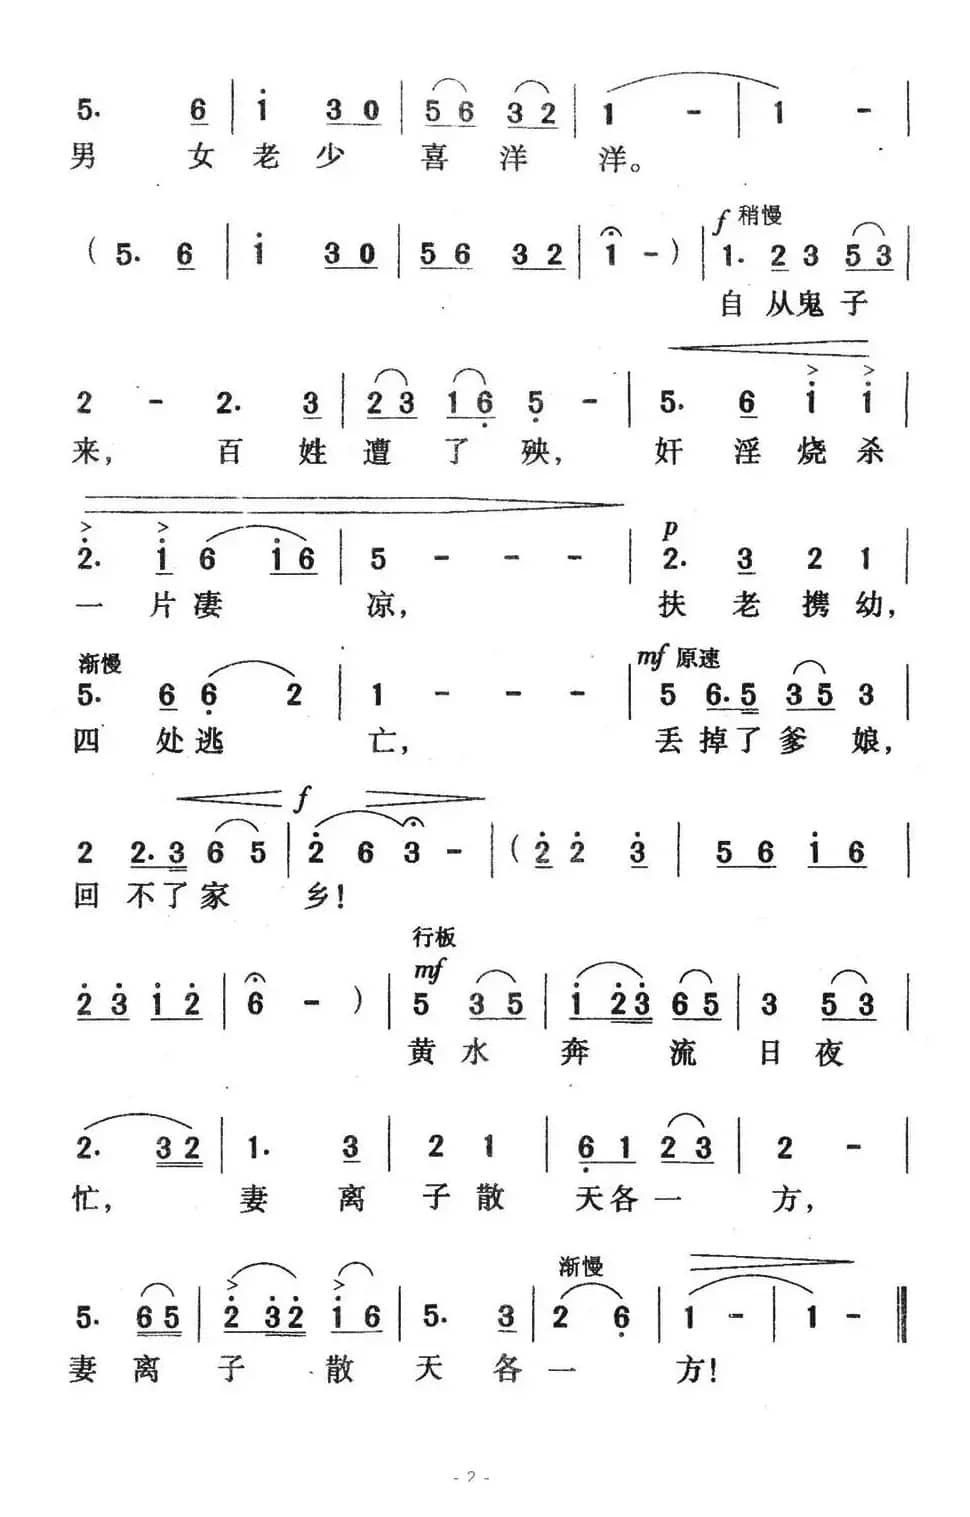 5. 6 | i 30 | 56 32 | 1 - | 1 - |
男 女 老 少 喜 洋 洋。
f 稍慢
( 5. 6 | i 30 | 56 32 | 1 - ) | 1. 2 3 53 |
自 从 鬼 子
2 - 2. 3 | 23 16 5 - | 5. 6 i i |
来, 百 姓 遭 了 殃, 奸 淫 烧 杀
p
2. i 6 i6 | 5 - - - | 2. 3 2 1 |
一 片 凄 凉, 扶 老 携 幼,
渐慢 mf 原速
5. 6 6 2 | 1 - - - | 5 6.5 35 3 |
四 处 逃 亡, 丢 掉 了 爹 娘,
f
2 2.3 6 5 | 2 6 3 - | ( 2 2 3 | 56 i6 |
回 不 了 家 乡!
行板
mf
23 i2 | 6 - ) 5 35 | i 23 65 | 3 53 |
黄 水 奔 流 日 夜
2. 32 | 1. 3 2 1 | 61 23 | 2 - |
忙, 妻 离 子 散 天 各 一 方,
渐慢
5. 65 | 2 32 i6 | 5. 3 | 2 6 | 1 - | 1 - ‖
妻 离 子 散 天 各 一 方!
- 2 -